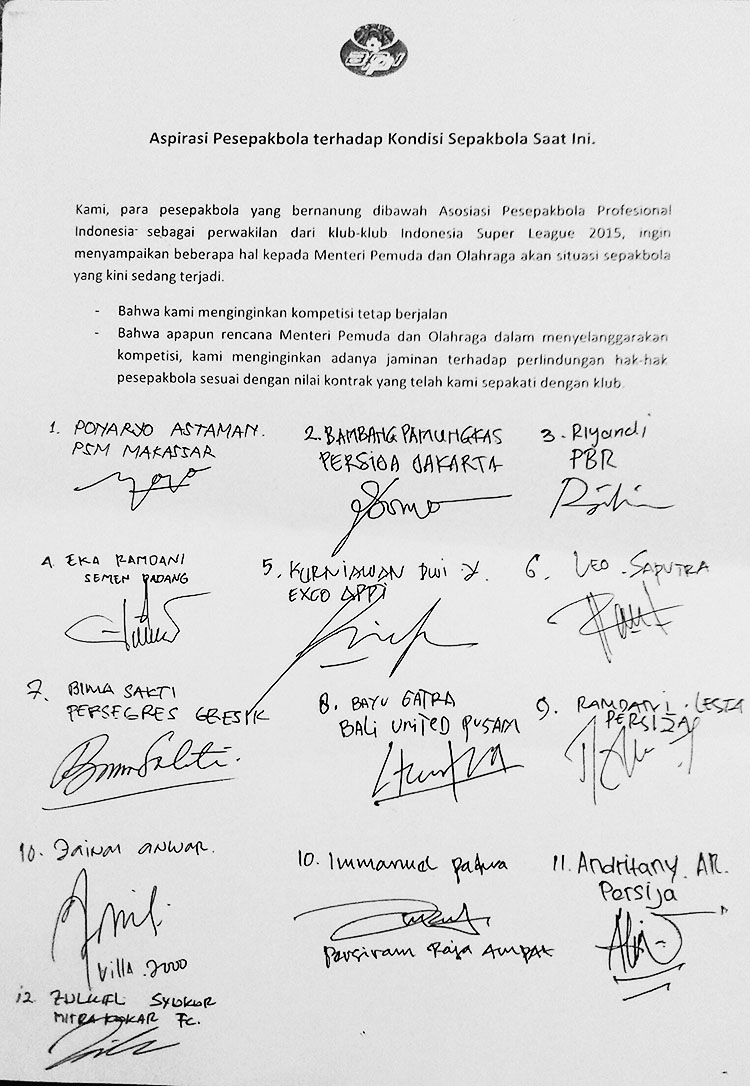 APPI
Aspirasi Pesepakbola terhadap Kondisi Sepakbola Saat Ini.
Kami, para pesepakbola yang bernanung dibawah Asosiasi Pesepakbola Profesional
Indonesia sebagai perwakilan dari klub-klub Indonesia Super League 2015, ingin
menyampaikan beberapa hal kepada Menteri Pemuda dan Olahraga akan situasi sepakbola
yang kini sedang terjadi.
- Bahwa kami menginginkan kompetisi tetap berjalan
- Bahwa apapun rencana Menteri Pemuda dan Olahraga dalam menyelanggarakan
kompetisi, kami menginginkan adanya jaminan terhadap perlindungan hak-hak
pesepakbola sesuai dengan nilai kontrak yang telah kami sepakati dengan klub.
1. PONARYO ASTAMAN.
PSM MAKASSAR
2. BAMBANG PAMUNGKAS
PERSIJA JAKARTA
3. Riyandi
PBR
4. EKA RAMDANI
SEMEN PADANG
5. KURNIAWAN DWI Y.
EXCO APPI
6. LEO SAPUTRA
7. BIMA SAKTI
PERSEGRES GRESIK
8. BAYU GATRA
BALI UNITED PUSAM
9. RAMDANI LESTA
PERSIJA
10. Zainal anwar.
Villa 2000
10. Immanuel padwa
Persiram Raja Ampat
11. Andritany AR.
Persija
12 ZULKIFLI SYUKUR
MITRA KUKAR FC.